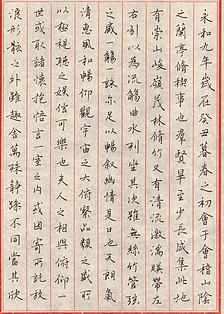 永和九年歲在癸丑暮春之初會于會稽山陰
之蘭亭脩稧事也羣賢畢至少長咸集此地
有崇山峻嶺茂林脩竹又有清流激湍暎帶左
右引以為流觴曲水列坐其次雖無絲竹管弦
之盛一觴一詠亦足以暢敘幽情是日也天朗氣
清惠風和暢仰觀宇宙之大俯察品類之盛所
以極視聽之娛信可樂也夫人之相與俯仰一
世或取諸懷抱悟言一室之內或因寄所託放
浪形骸之外雖趣舍萬殊靜躁不同當其欣